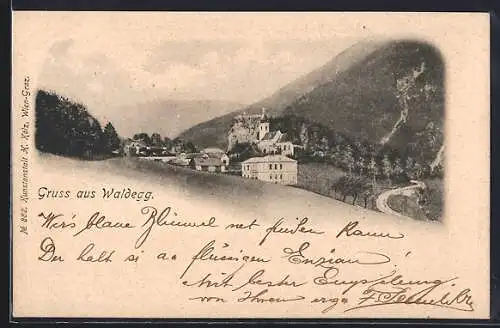 № 222. Kunstanstalt K. Kölz, Wien-Graz.
Gruss aus Waldegg.
Wer's blaue Blümerl net finden kann
Der halt si an flüssigen Enzian!
Mit bester Empfehlung
von Ihrem erga